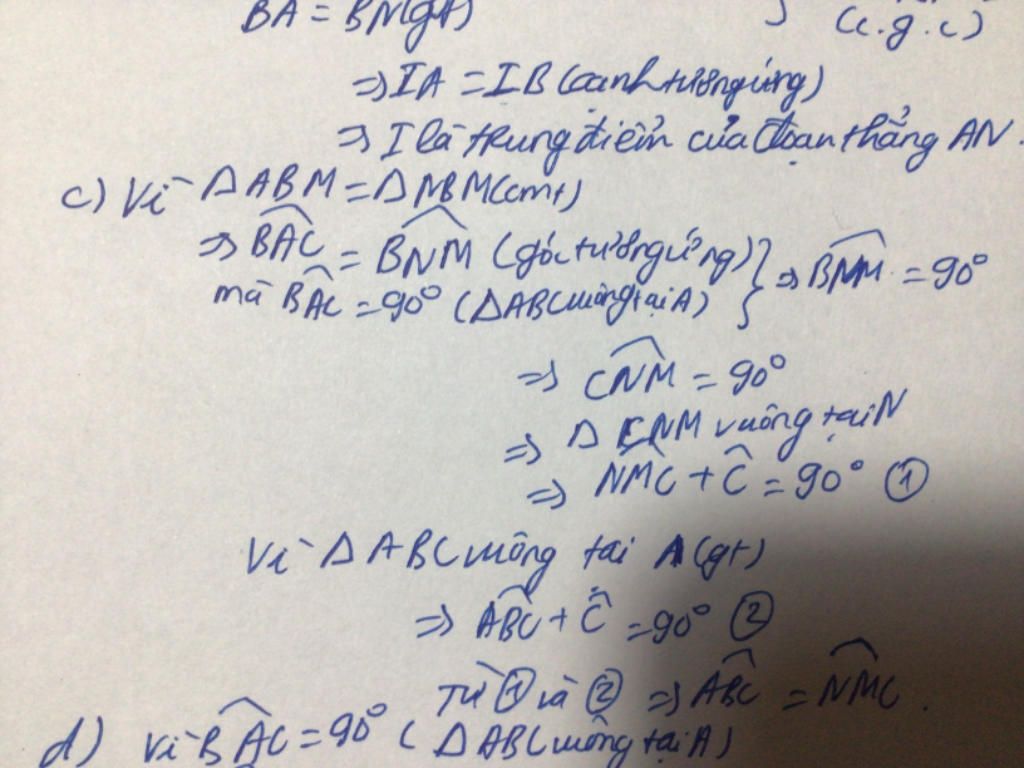 BA = BN(gt)
(c.g.c)
⇒ IA = IB (cạnh tương ứng)
⇒ I là trung điểm của đoạn thẳng AN.
c) Vì ΔABM = ΔNBM(cmt)
⇒ \widehat{BAC} = \widehat{BNM} (góc tương ứng) } ⇒ \widehat{BNM} = 90°
mà \widehat{BAC} = 90° (ΔABC vuông tại A)
⇒ \widehat{CNM} = 90°
⇒ Δ CNM vuông tại N
⇒ \widehat{NMC} + \widehat{C} = 90° ①
Vì ΔABC vuông tại A (gt)
⇒ \widehat{ABC} + \widehat{C} = 90° ②
Từ ① và ② ⇒ \widehat{ABC} = \widehat{NMC}.
d) Vì \widehat{BAC} = 90° (ΔABC vuông tại A)